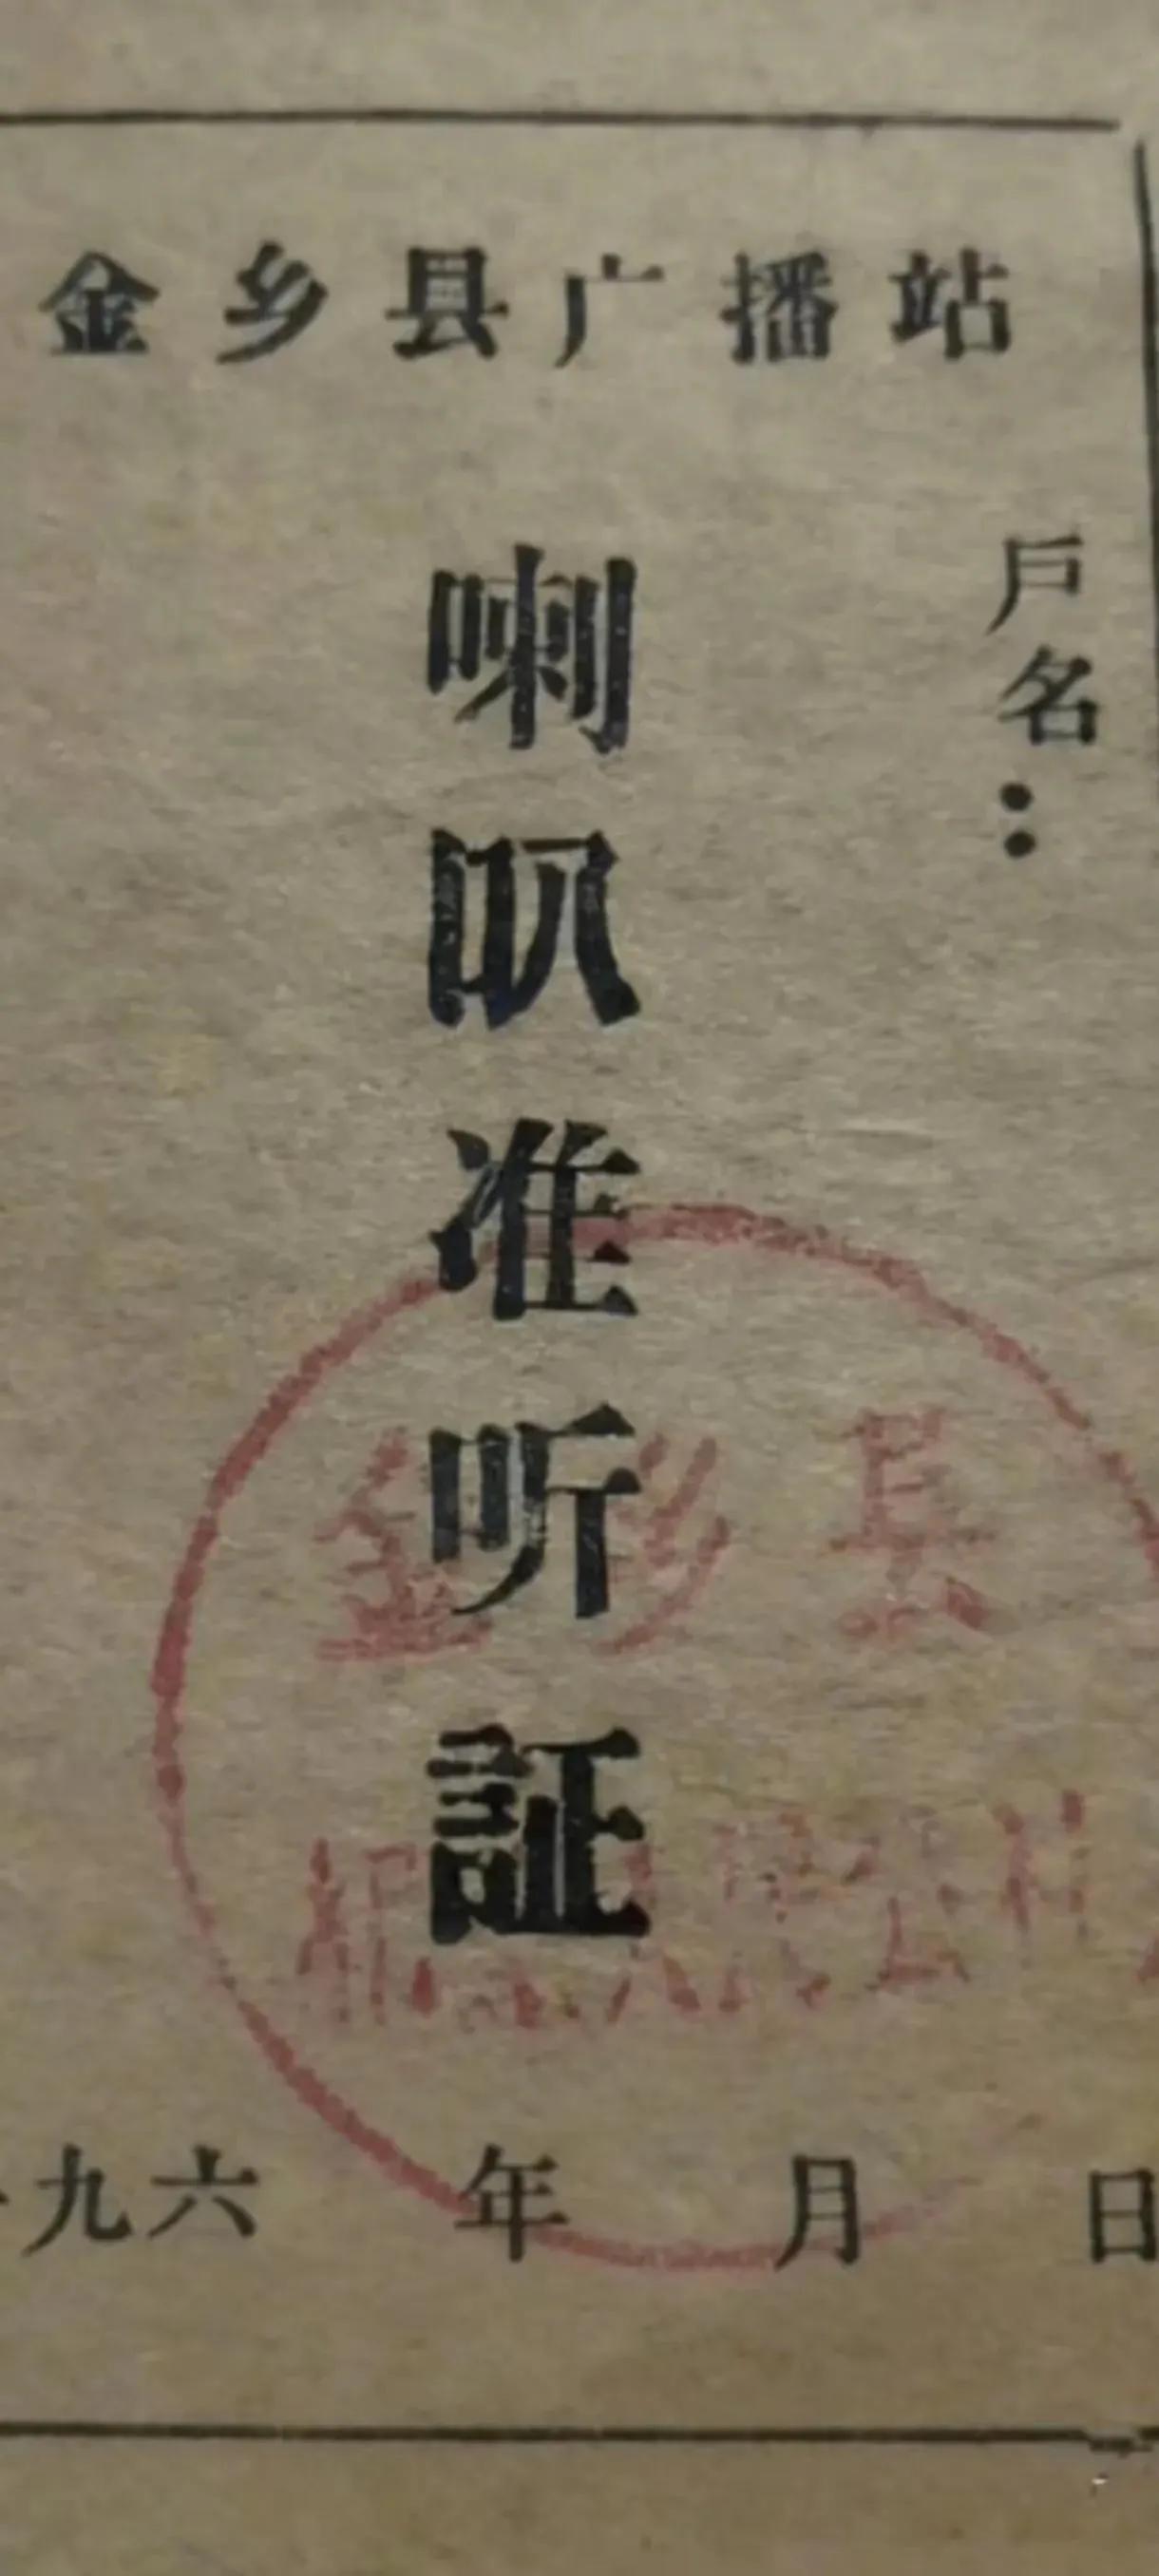 金乡县广播站
户名：
喇叭准听証
九六 年 月 日
金乡县